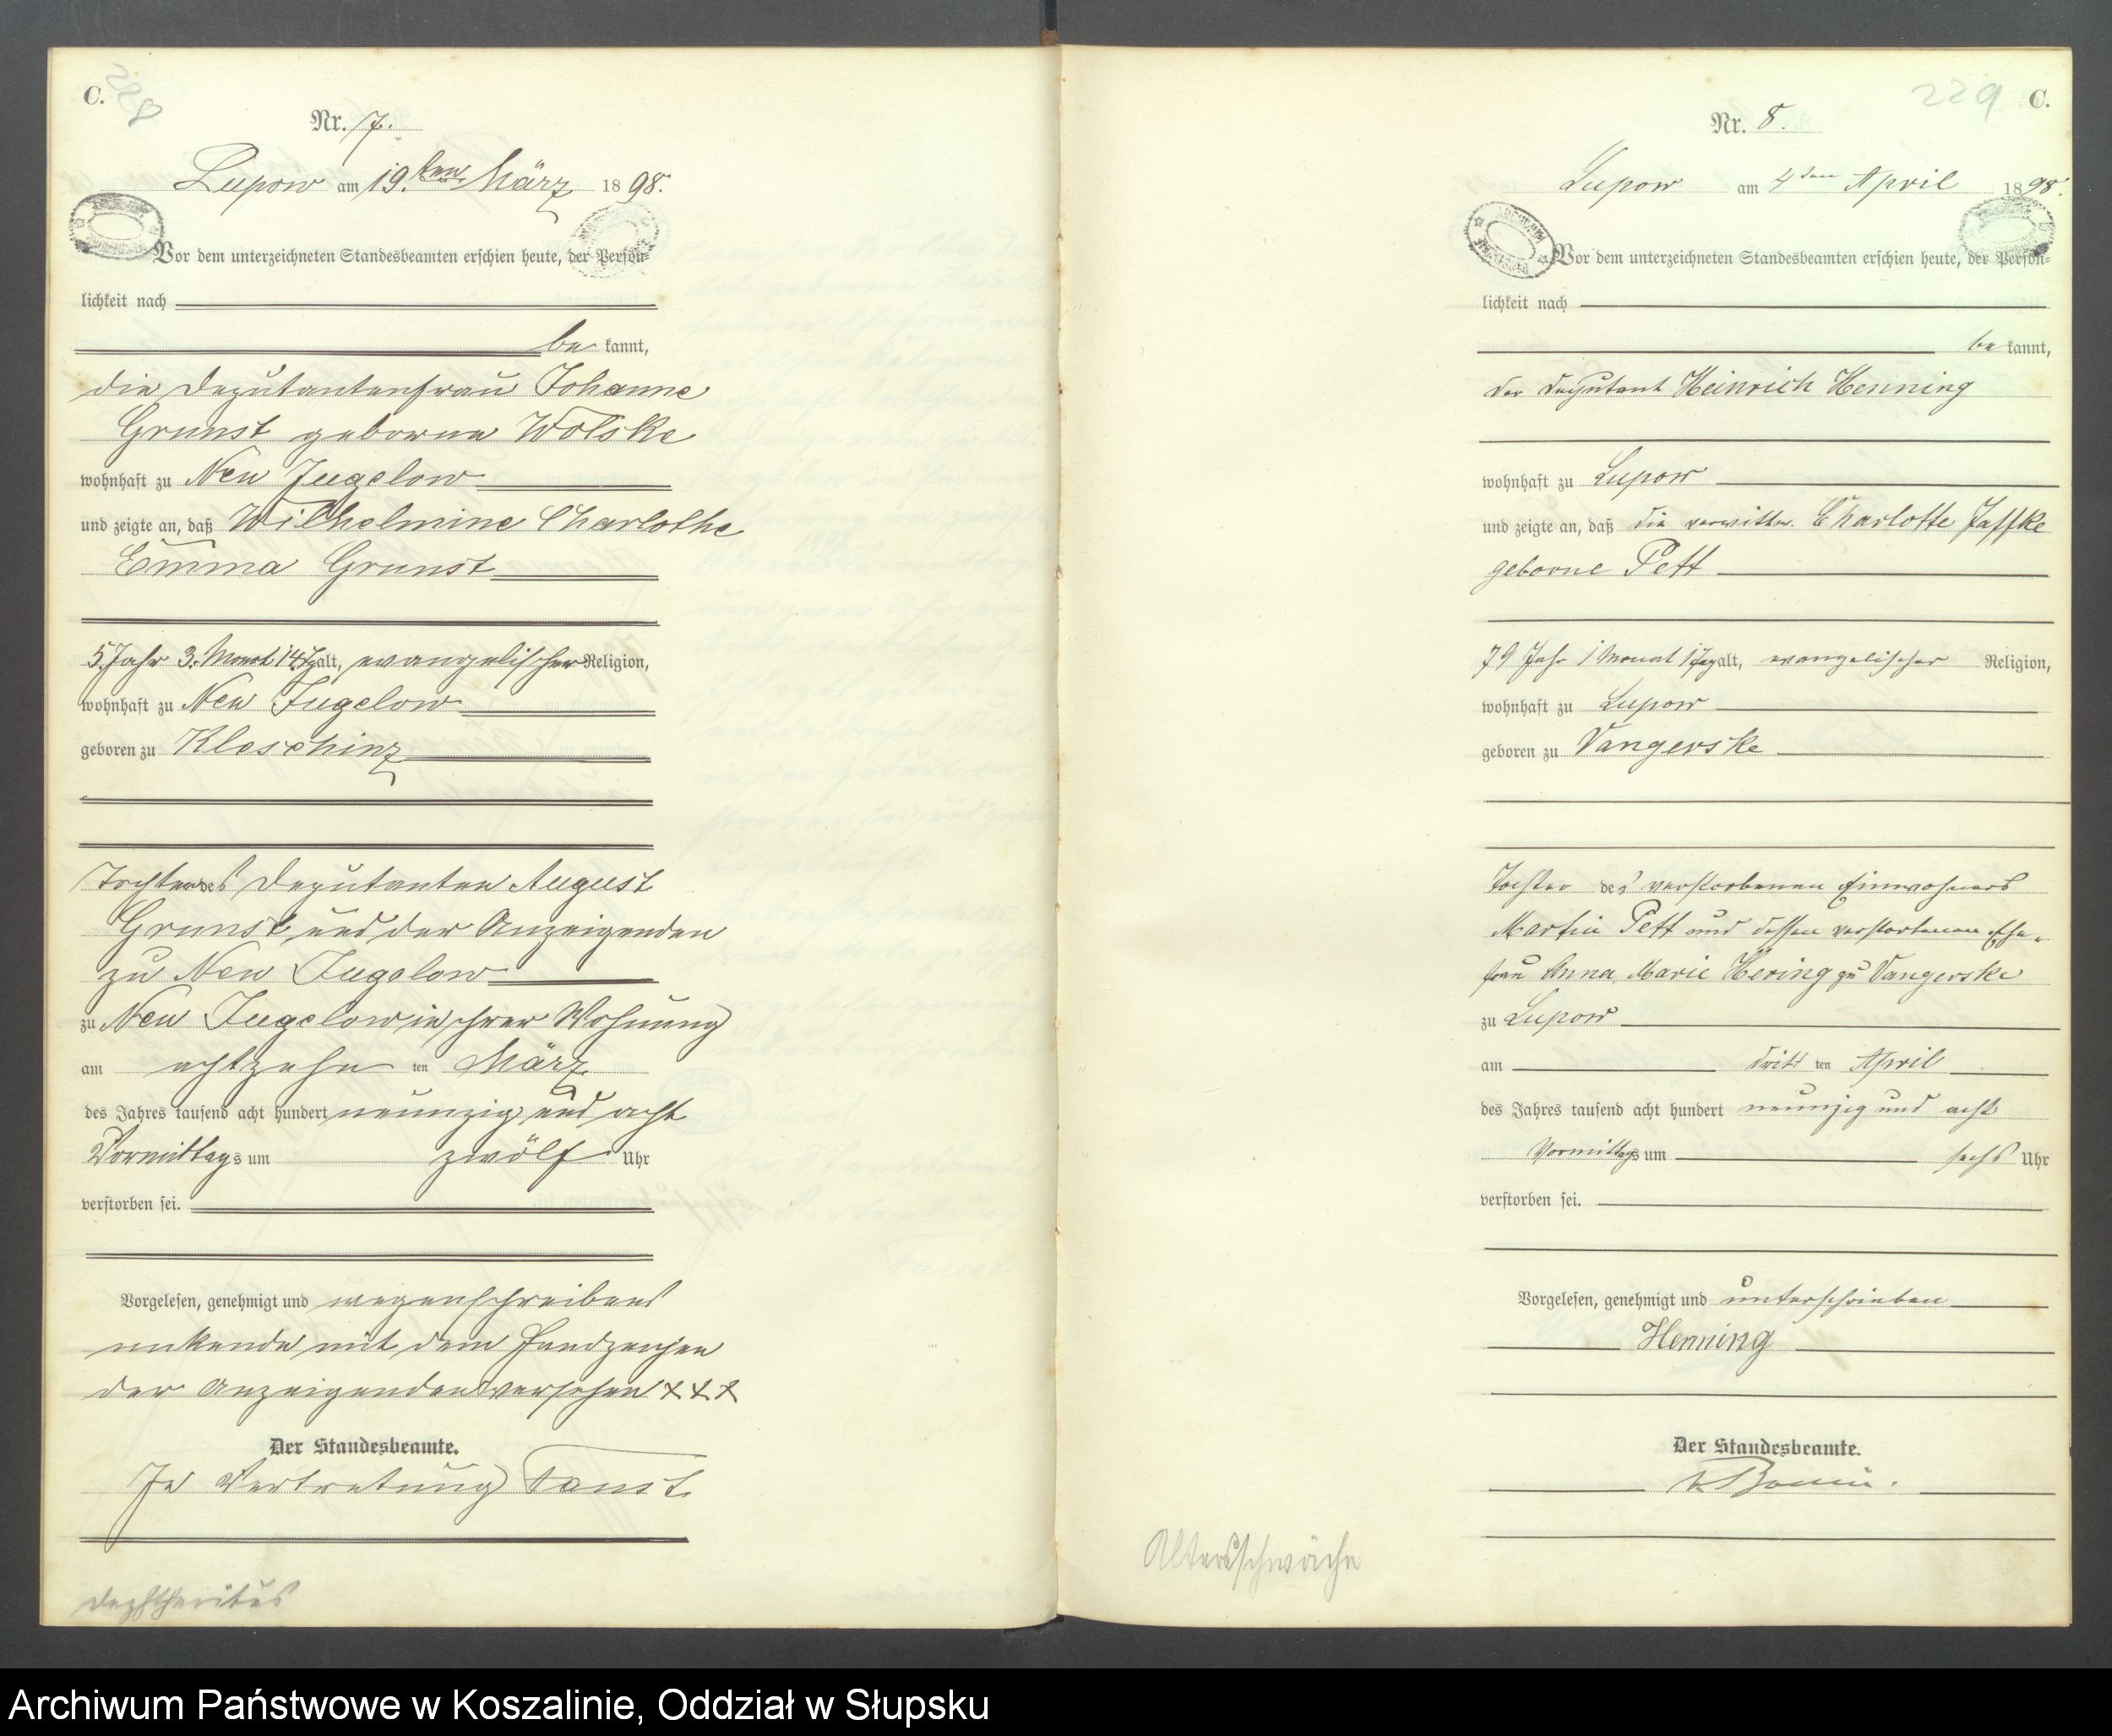 C.
228
Nr. 7.
Lupow am 19.ten März 1898.
Vor dem unterzeichneten Standesbeamten erschien heute, der Persön-
lichkeit nach
be kannt,
die Deputantenfrau Johanne
Grunst geborne Wolske
wohnhaft zu Neu Jugelow
und zeigte an, daß Wilhelmine Charlothe
Emma Grunst
5 Jahr 3. Monat 14 Tg alt, evangelischer Religion,
wohnhaft zu Neu Jugelow
geboren zu Kleschinz
Tochter des Deputanten August
Grunst und der Anzeigenden
zu Neu Jugelow
zu Neu Jugelow in ihrer Wohnung
am achtzehn ten März
des Jahres tausend acht hundert neunzig und acht
Vormittags um zwölf Uhr
verstorben sei.
Vorgelesen, genehmigt und wegen schreibens
unkende mit dem Handzeichen
der Anzeigenden versehen + + +
Der Standesbeamte.
In Vertretung Fanst
Dephtheritus
229 C.
Nr. 8.
Lupow am 4ten April 1898.
Vor dem unterzeichneten Standesbeamten erschien heute, der Persön-
lichkeit nach
be kannt,
der Deputant Heinrich Henning
wohnhaft zu Lupow
und zeigte an, daß die verwittw. Charlotte Jaffke
geborne Pett
79 Jahr 1 Monat 1 Tag alt, evangelischer Religion,
wohnhaft zu Lupow
geboren zu Vangerske
Tochter des verstorbenen Einwohners
Martin Pett und dessen verstorbenen Ehe-
frau Anna, Marie Hering zu Vangerske
zu Lupow
am dritt ten April
des Jahres tausend acht hundert neunzig und acht
Vormittags um sechs Uhr
verstorben sei.
Vorgelesen, genehmigt und unterschrieben
Henning
Der Standesbeamte.
v. Bonin.
Altersschwäche
Archiwum Państwowe w Koszalinie, Oddział w Słupsku